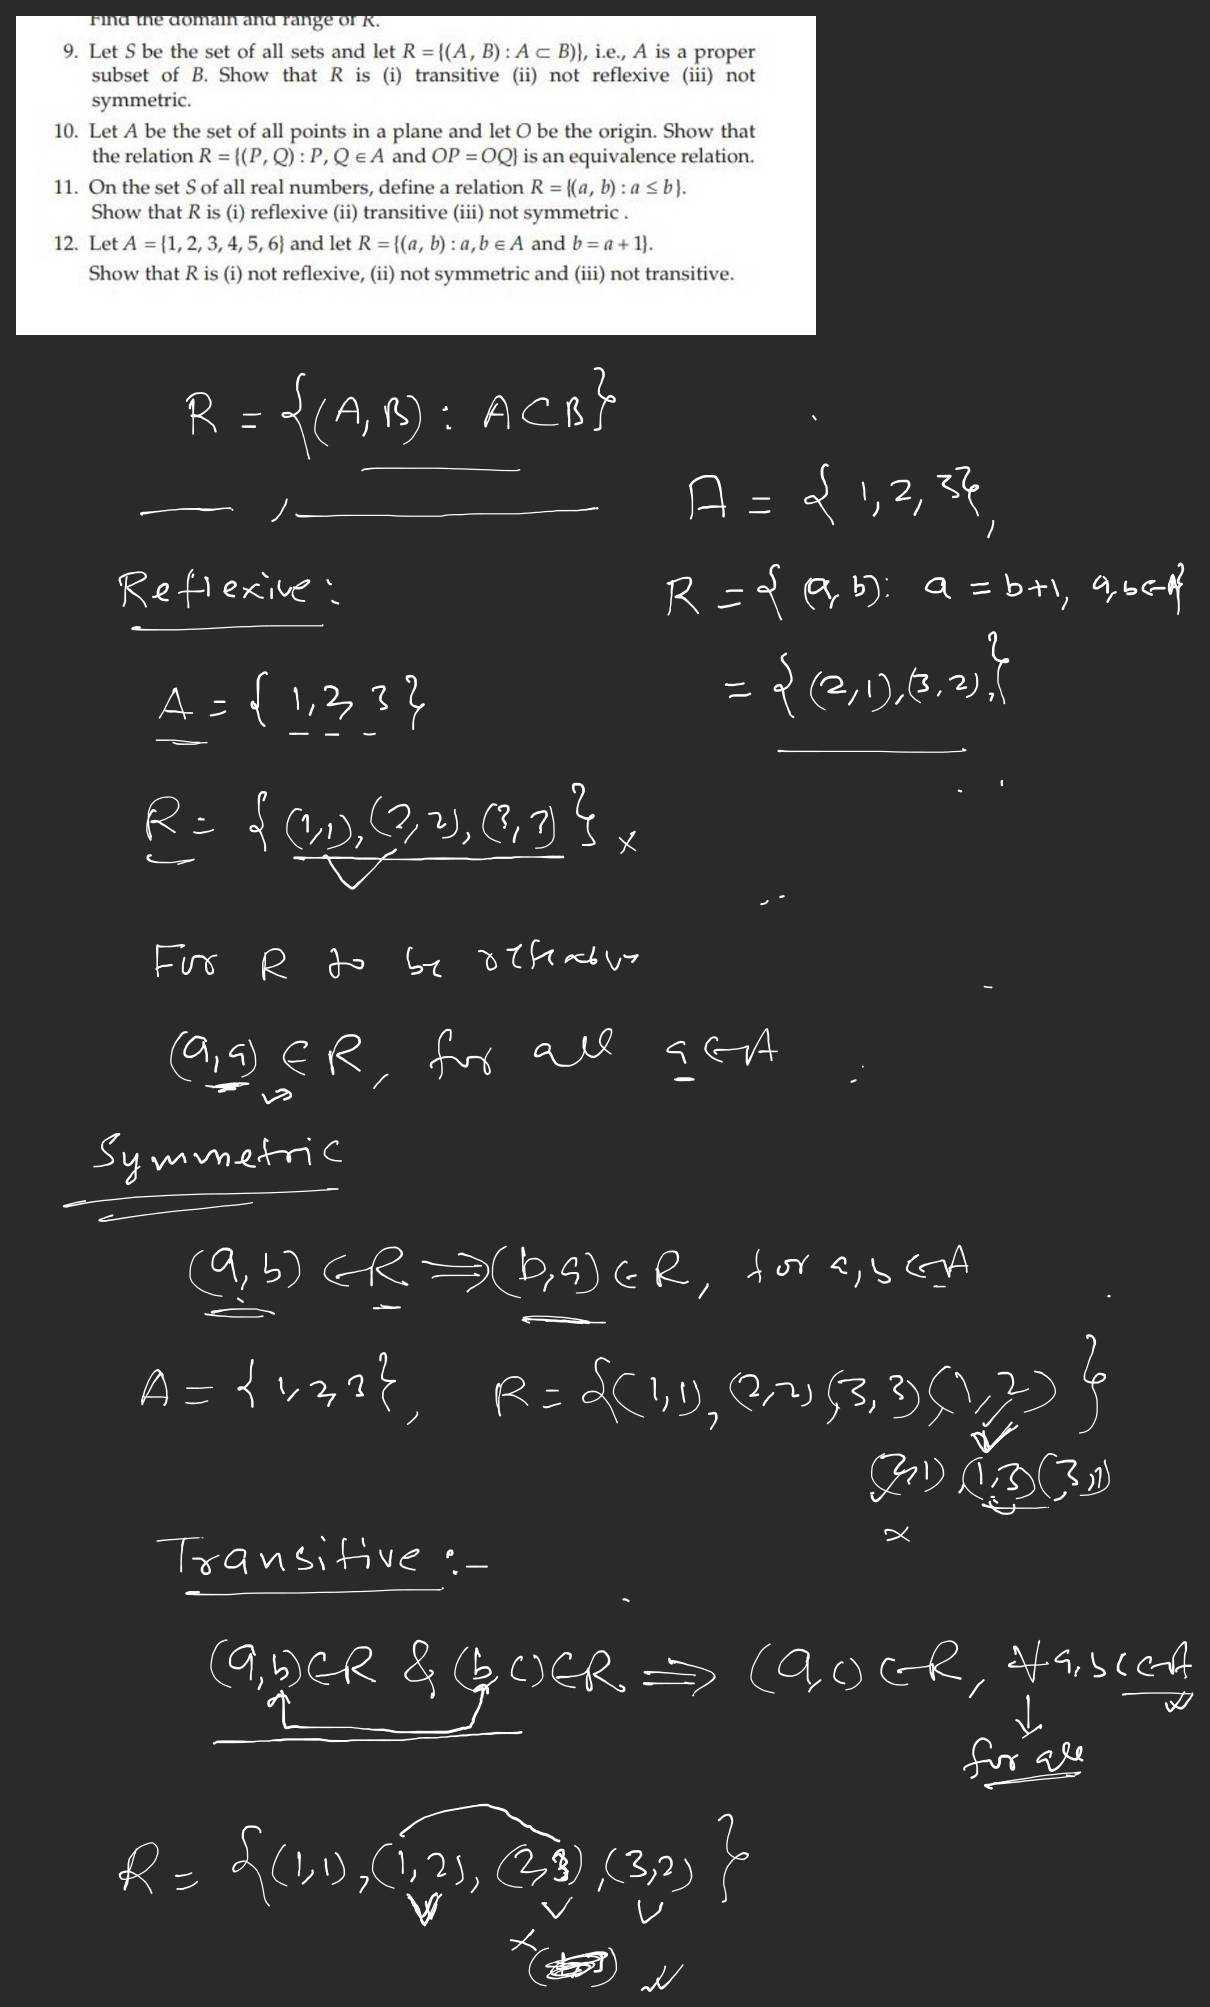 Find the domain and range of R.
9. Let S be the set of all sets and let R = {(A, B) : A ⊂ B)}, i.e., A is a proper
subset of B. Show that R is (i) transitive (ii) not reflexive (iii) not
symmetric.
10. Let A be the set of all points in a plane and let O be the origin. Show that
the relation R = {(P, Q) : P, Q ∈ A and OP = OQ} is an equivalence relation.
11. On the set S of all real numbers, define a relation R = {(a, b) : a ≤ b}.
Show that R is (i) reflexive (ii) transitive (iii) not symmetric .
12. Let A = {1, 2, 3, 4, 5, 6} and let R = {(a, b) : a, b ∈ A and b = a + 1}.
Show that R is (i) not reflexive, (ii) not symmetric and (iii) not transitive.
R = {(A, B) : A ⊂ B}
A = {1, 2, 3},
Reflexive :
R = {(a, b) : a = b+1, a, b ∈ A}
= {(2, 1), (3, 2),}
A = {1, 2, 3}
R = {(1,1), (2, 2), (3, 3)} x
For R to be
(a, a) ∈ R, for all a ∈ A
Symmetric
(a, b) ∈ R ⇒ (b, a) ∈ R, for a, b ∈ A
A = {1, 2, 3}, R = {(1, 1), (2, 2) (3, 3) (1, 2)}
(2, 1) (1, 3) (3, 1)
x
Transitive :-
(a, b) ∈ R & (b, c) ∈ R ⇒ (a, c) ∈ R, ∀ a, b, c ∈ A
for all
R = {(1, 1), (1, 2), (2, 3), (3, 2)}
x